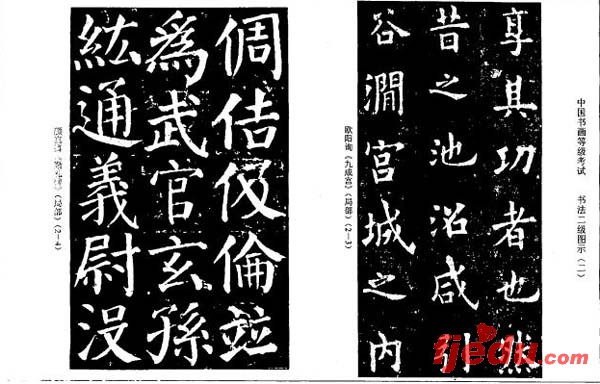 中国书画等级考试 书法二级图示(二)
享其功者也然
昔之池沼咸引
谷澗宫城之内
欧阳询《九成宫》(局部)(2—3)
倜佶伋倫並
爲武官玄孫
紘通義尉没
(局部)(2—4)
fjedu.com